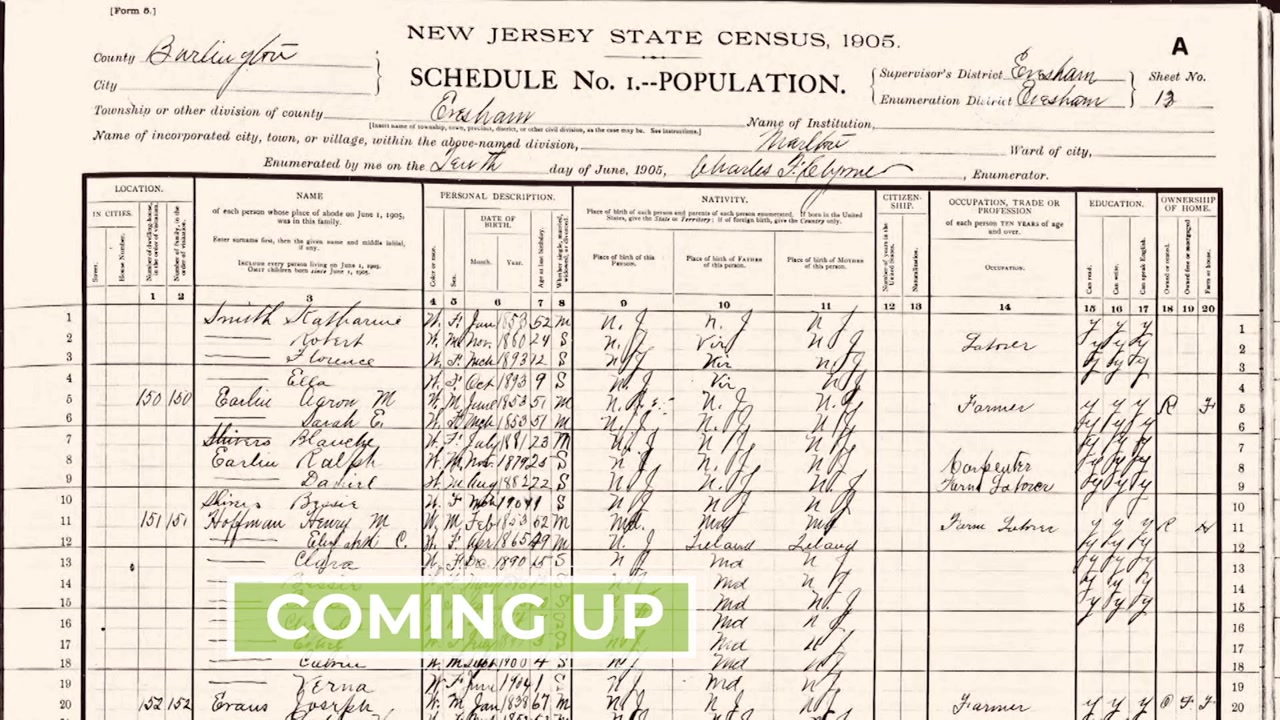 [Form 5.]
NEW JERSEY STATE CENSUS, 1905.
A
County Burlington
City
SCHEDULE No. 1.--POPULATION.
Supervisor's District Evesham
Enumeration District Evesham
Sheet No.
13
Township or other division of county Evesham
[Insert name of township, town, precinct, district, or other civil division, as the case may be. See instructions.]
Name of Institution,
Name of incorporated city, town, or village, within the above-named division, Marlton
Ward of city,
Enumerated by me on the Tenth day of June, 1905, Charles , Enumerator.
LOCATION. NAME PERSONAL DESCRIPTION. NATIVITY. CITIZEN-SHIP. OCCUPATION, TRADE OR PROFESSION EDUCATION. OWNERSHIP OF HOME.
IN CITIES.
Street.
House Number.
Number of dwelling-house, in the order of visitation.
Number of family, in the order of visitation.
of each person whose place of abode on June 1, 1905, was in this family.
Enter surname first, then the given name and middle initial, if any.
INCLUDE every person living on June 1, 1905.
OMIT children born since June 1, 1905.
Color or race.
Sex.
DATE OF BIRTH.
Month. Year.
Age at last birthday.
Whether single, married, widowed, or divorced.
Place of birth of each person and parents of each person enumerated. If born in the United States, give the State or Territory; if of foreign birth, give the Country only.
Place of birth of this PERSON.
Place of birth of FATHER of this person.
Place of birth of MOTHER of this person.
Number of years in the United States.
Naturalization.
of each person TEN YEARS of age and over.
OCCUPATION.
Can read.
Can write.
Can speak English.
Owned or rented.
Owned free or mortgaged.
Farm or house.
1 2 3 4 5 6 7 8 9 10 11 12 13 14 15 16 17 18 19 20
1 Smith Katharine W. F. Jan 1853 52 M N. J N. J N J y y y 1
2 Robert W. M. Nov. 1880 24 S N. J Vir N J Laborer y y y 2
3 Florence W. F. Mch 1893 12 S N J Vir N. J y y y 3
4 Ella W. F. Oct 1893 9 S N. J Vir N J 4
5 150 150 Earlin Aaron M W. M. June 1853 51 M N. J. N. J N. J Farmer y y y R F 5
6 Sarah E. W. F. Mch 1853 51 M N. J N. J N. J y y y 6
7 Shivers Blanche W. F. July 1881 23 M N. J N J N J y y y 7
8 Earlin Ralph W. M. Nov. 1879 25 S N J N J N J Carpenter y y y 8
9 Daniel W. M. Aug 1882 22 S N J N. J N J Farm Laborer y y y 9
10 Shivers W. F. 1904 1 S N J N J N J 10
11 151 151 Hoffman Henry M W. M. Feb 1853 52 M Md. Md Md Farm Laborer y y y R H 11
12 Elizabeth C. W. F. Apr 1865 M N. J Ireland Ireland y y y 12
13 Clara W. F. Dec 1890 S N J Md N J y y y 13
14 Md N J y y y 14
15 Md N. J y y y 15
COMING UP
16 Md N J 16
17 Md N J 17
18 W. M. Sept 1900 4 S N J Md N J 18
19 Verna W. F. June 1904 1 S N J Md N J 19
20 152 152 Evans Joseph W. M. Jan 1838 67 M N. J N. J N. J Farmer y y y O F F 20